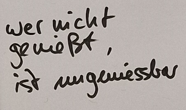 wer nicht
genießt,
ist ungeniessbar